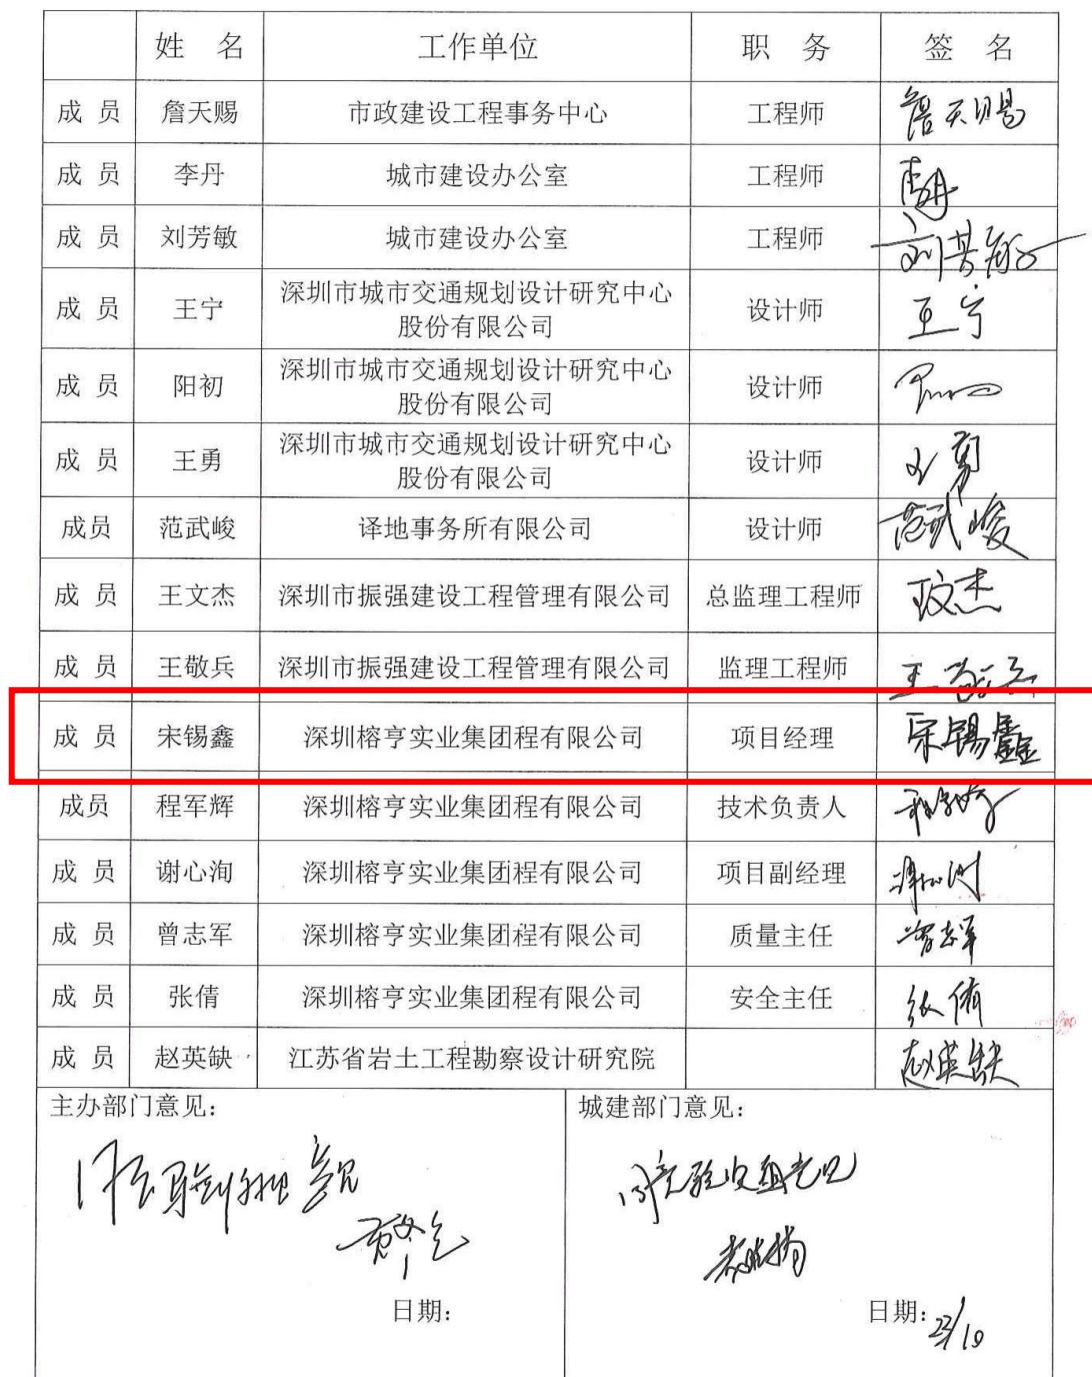 姓 名 工作单位 职 务 签 名
成 员 詹天赐 市政建设工程事务中心 工程师 詹天赐
成 员 李丹 城市建设办公室 工程师 李丹
成 员 刘芳敏 城市建设办公室 工程师 刘芳敏
成 员 王宁 深圳市城市交通规划设计研究中心
股份有限公司 设计师 王宁
成 员 阳初 深圳市城市交通规划设计研究中心
股份有限公司 设计师
成 员 王勇 深圳市城市交通规划设计研究中心
股份有限公司 设计师 王勇
成员 范武峻 译地事务所有限公司 设计师 范武峻
成 员 王文杰 深圳市振强建设工程管理有限公司 总监理工程师 王文杰
成 员 王敬兵 深圳市振强建设工程管理有限公司 监理工程师 王敬兵
成 员 宋锡鑫 深圳榕亨实业集团程有限公司 项目经理 宋锡鑫
成员 程军辉 深圳榕亨实业集团程有限公司 技术负责人
成 员 谢心洵 深圳榕亨实业集团程有限公司 项目副经理
成 员 曾志军 深圳榕亨实业集团程有限公司 质量主任 曾志军
成 员 张倩 深圳榕亨实业集团程有限公司 安全主任 张倩
成 员 赵英缺 江苏省岩土工程勘察设计研究院 赵英缺
主办部门意见：
日期：
城建部门意见：
同意验收组意见
日期：23/10